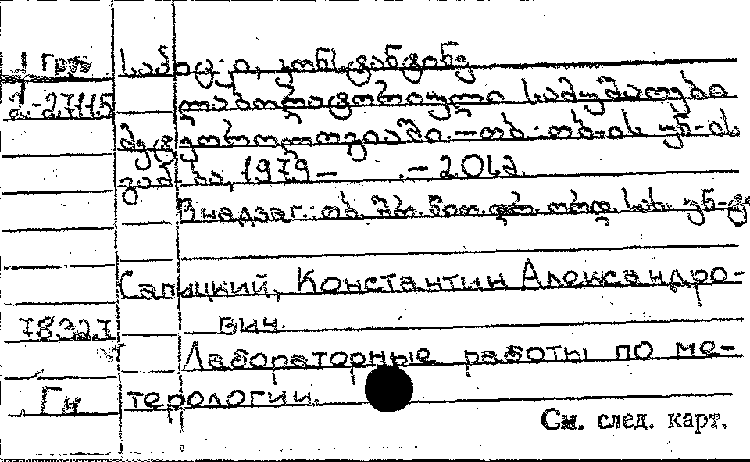 1 Груз
საპიცკი, კონსტანტინე
2-27115
ლაბორატორიული სამუშაოები
მეტეოროლოგიაში.—თბ.: თბ-ის უნ-ის
გამ-ბა, 1979—
В надзаг.: თბ. შრ. წით.
Сапицкий, Константин Александро-
78327
вич
Лабораторные работы по ме-
Гн терологии.
См. след. карт.